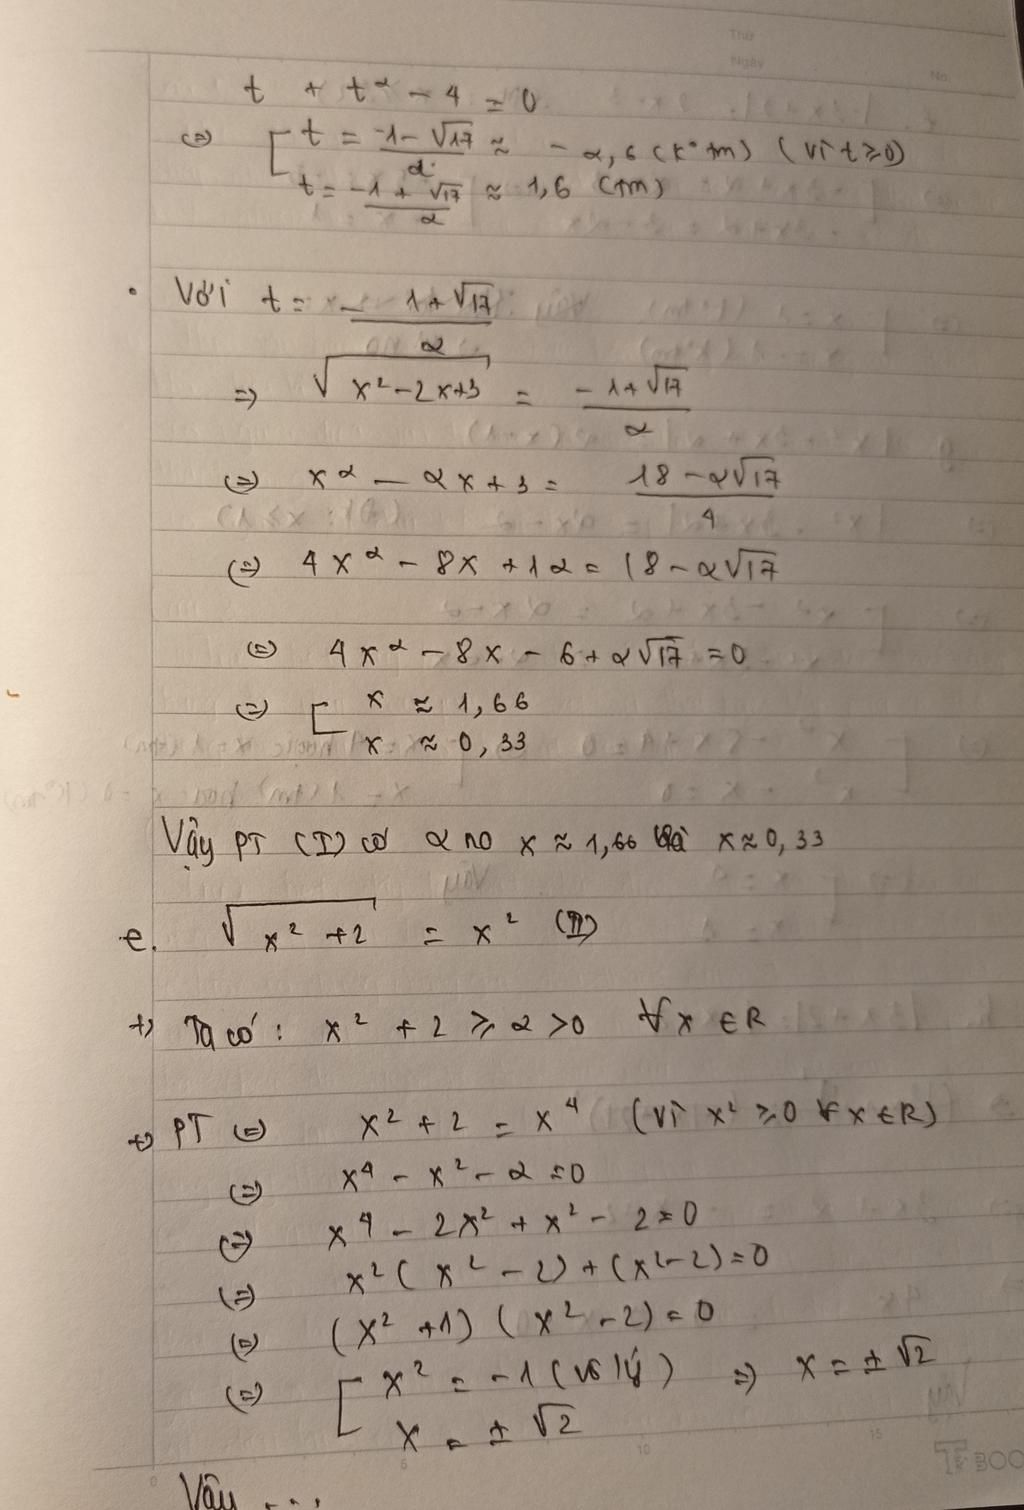 Thứ
Ngày
No.
t + t² - 4 = 0
⇔ [ t = (-1-√17)/2 ≈ -2,6 (k° tm) (vì t ≥ 0)
t = (-1+√17)/2 ≈ 1,6 (tm)
• Với t = (-1+√17)/2
⇒ √(x²-2x+3) = (-1+√17)/2
⇔ x² - 2x + 3 = (18-2√17)/4
⇔ 4x² - 8x + 12 = 18 - 2√17
⇔ 4x² - 8x - 6 + 2√17 = 0
⇔ [ x ≈ 1,66
x ≈ 0,33
Vậy PT (I) có 2 no x ≈ 1,66 và x ≈ 0,33
e. √(x² + 2) = x² (II)
+) Ta có: x² + 2 ≥ 2 > 0 ∀x ∈ R
+) PT ⇔ x² + 2 = x⁴ (vì x² ≥ 0 ∀x ∈ R)
⇔ x⁴ - x² - 2 = 0
⇔ x⁴ - 2x² + x² - 2 = 0
⇔ x²(x² - 2) + (x² - 2) = 0
⇔ (x² + 1)(x² - 2) = 0
⇔ [ x² = -1 (vô lý) ⇒ x = ± √2
x = ± √2
Vậy ...
0 5 10 15
BOO